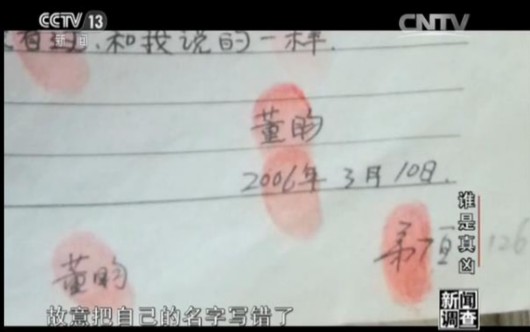 CCTV 13
新闻
CNTV
和我说的一样.
董昀
2006年3月10日.
谁是真凶
第7页
126
董昀
新闻
调查
故意把自己的名字写错了